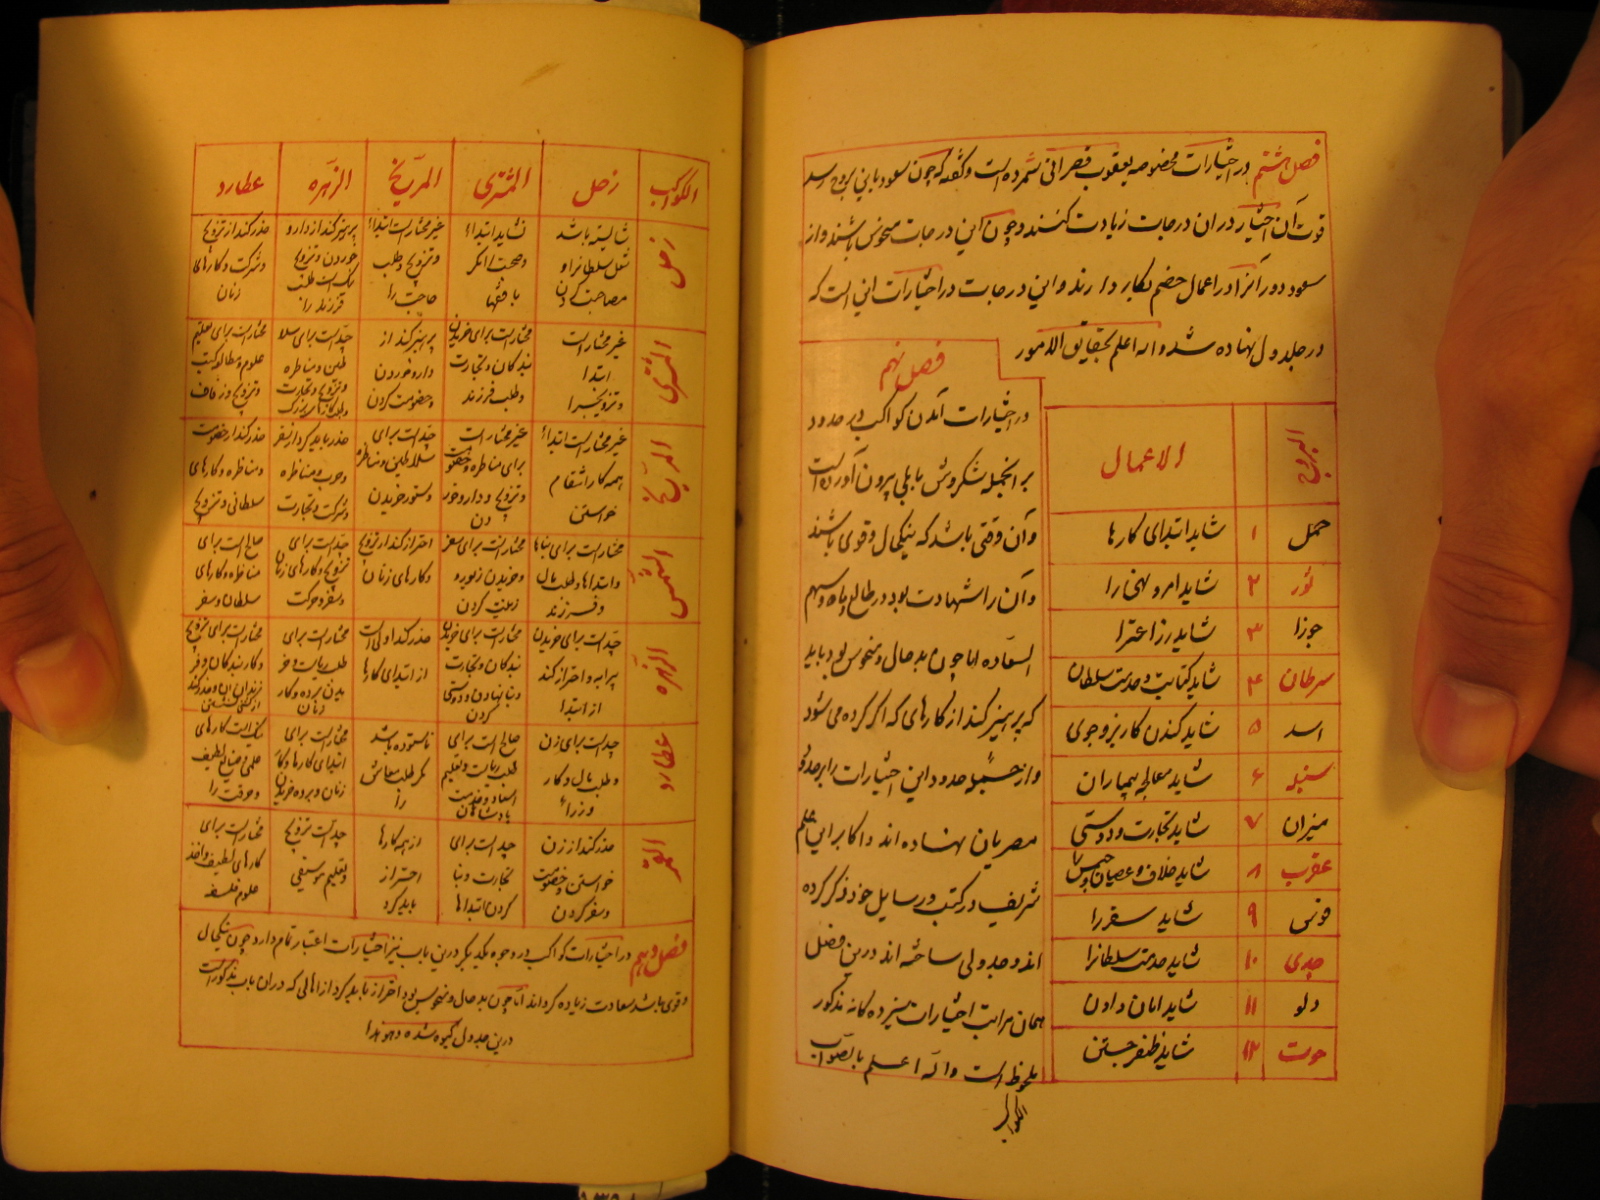 فصل هشتم در اختیارات مخصوصه یعقوب قصرانی شمرده است و گفته که چون سعود باین بروج رسد
قوت آن اختیار در ان درجات زیادت کنند و چون این درجات منحوس باشند و از
سعود دور آنرا در اعمال خصم بکار دارند و این درجات در اختیارات این است که
در جدول نهاده شد واله اعلم بحقایق الامور
البروج الاعمال
حمل ۱ شاید ابتدای کارها
ثور ۲ شاید امر و نهی را
جوزا ۳ شاید
سرطان ۴ شاید کتابت و خدمت سلطان
اسد ۵ شاید کندن کاریز و جوی
سنبله ۶ شاید معالجه بیماران
میزان ۷ شاید تجارت و دوستی
عقرب ۸ شاید خلاف و عصیان
قوس ۹ شاید سفر را
جدی ۱۰ شاید خدمت سلطانرا
دلو ۱۱ شاید امان دادن
حوت ۱۲ شاید ظفر جستن
فصل نهم
در اختیارات آمدن کواکب در حدود
بر انجمله بابلی بیرون آورده است
و آن وقتی باشد که نیکحال و قوی باشند
و آن را شهادت بود در طالع و ماه و سهم
السعاده اما چون بدحال و منحوس بود باید
که پرهیز کند از کارهای که اگر کرده می شود
و از جمله حدود این اختیارات را بر حدود
مصریان نهاده اند و اکابر این علم
شریف در کتب و رسایل خود ذکر کرده
اند و جدولی ساخته اند درین فصل
همان مراتب اختیارات سیزده کانه مذکور
ملحوظ است واله اعلم بالصواب
الکواکب
الکواکب زحل المشتری المریخ الزهره عطارد
زحل
شایسته باشد
شغل سلطانرا و
مصاحبت کردن
نشاید ابتداء
و صحبت
با فقها
غیر مختار است ابتداء
و تزویج و طلب
حاجت را
پرهیز کند از دارو
خوردن و تزویج
نیک است طلب
فرزند را
حذر کند از تزویج
و شرکت و کارهای
زنان
المشتری
غیر مختار است
ابتدا
مختار است برای خریدن
بندکان و تجارت
و طلب فرزند
پرهیز کند از
دارو خوردن
و خصومت کردن
جید است برای سلا
طین و مناظره
و تزویج و تجارت
مختار است برای تعلیم
علوم و مطالعه کتب
و تزویج و زفاف
المریخ
غیر مختار است ابتداء
همه کار انتقام
خواستن
غیر مختار است
برای مناظره و خصومت
و تزویج و دارو خور
دن
جید است برای
سلاطین و مناظره
و ستور خریدن
حذر باید کرد از سفر
و حرب و مناظره
و شرکت و تجارت
حذر کند از خصومت
و مناظره و کارهای
سلطانی و تزویج
الشمس
مختار است برای بناها
و ابتداها و طلب مال
و فرزند
مختار است برای سفر
و خریدن زیور و
زینت کردن
احتراز کند از تزویج
و کارهای زنان
جید است برای
تزویج و کارهای زنان
و سفر و حرکت
صالح است برای
مناظره و کارهای
سلطان و سفر
الزهره
جید است برای خریدن
پیرایه و احتراز کند
از ابتدا
مختار است برای خریدن
بندکان و تجارت
و بنا نهادن و دوستی
کردن
حذر کند اولی است
از ابتدای کارها
مختار است برای
طلب ریاست و خر
یدن برده و کار
زنان
مختار است برای تزویج
و کار بندکان و
عطارد
جید است برای زن
و طلب مال و کار
وزراء
صالح است برای
طلب ریاست و تعلیم
استاد و خدمت
پادشاهان
ناستوده باشد
مکر طلب معاش
را
مختار است برای
ابتدای کارها و کار
زنان و برده خریدن
نیک است کارهای
علمی و صنایع لطیف
القمر
حذر کند از زن
خواستن و خصومت
و سفر کردن
جید است برای
تجارت و بنا
کردن ابتداها
از همه کارها
احتراز
باید کرد
جید است تزویج
و تعلیم موسیقی
مختار است برای
کارهای لطیف و اخذ
علوم فلسفه
فصل دهم در اختیارات کواکب در وجوه یکدیگر درین باب نیز اختیارات اعتبار تمام دارد چون نیکحال
و قوی باشد سعادت زیاده کرداند اما چون بدحال و منحوس بود احتراز باید کرد از اعمالی که در ان باب مذکور است
درین جدول شده و هو هذا